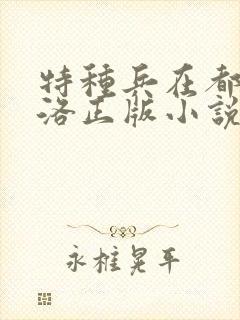 特種兵在都
洛正版小說
永樁晃平